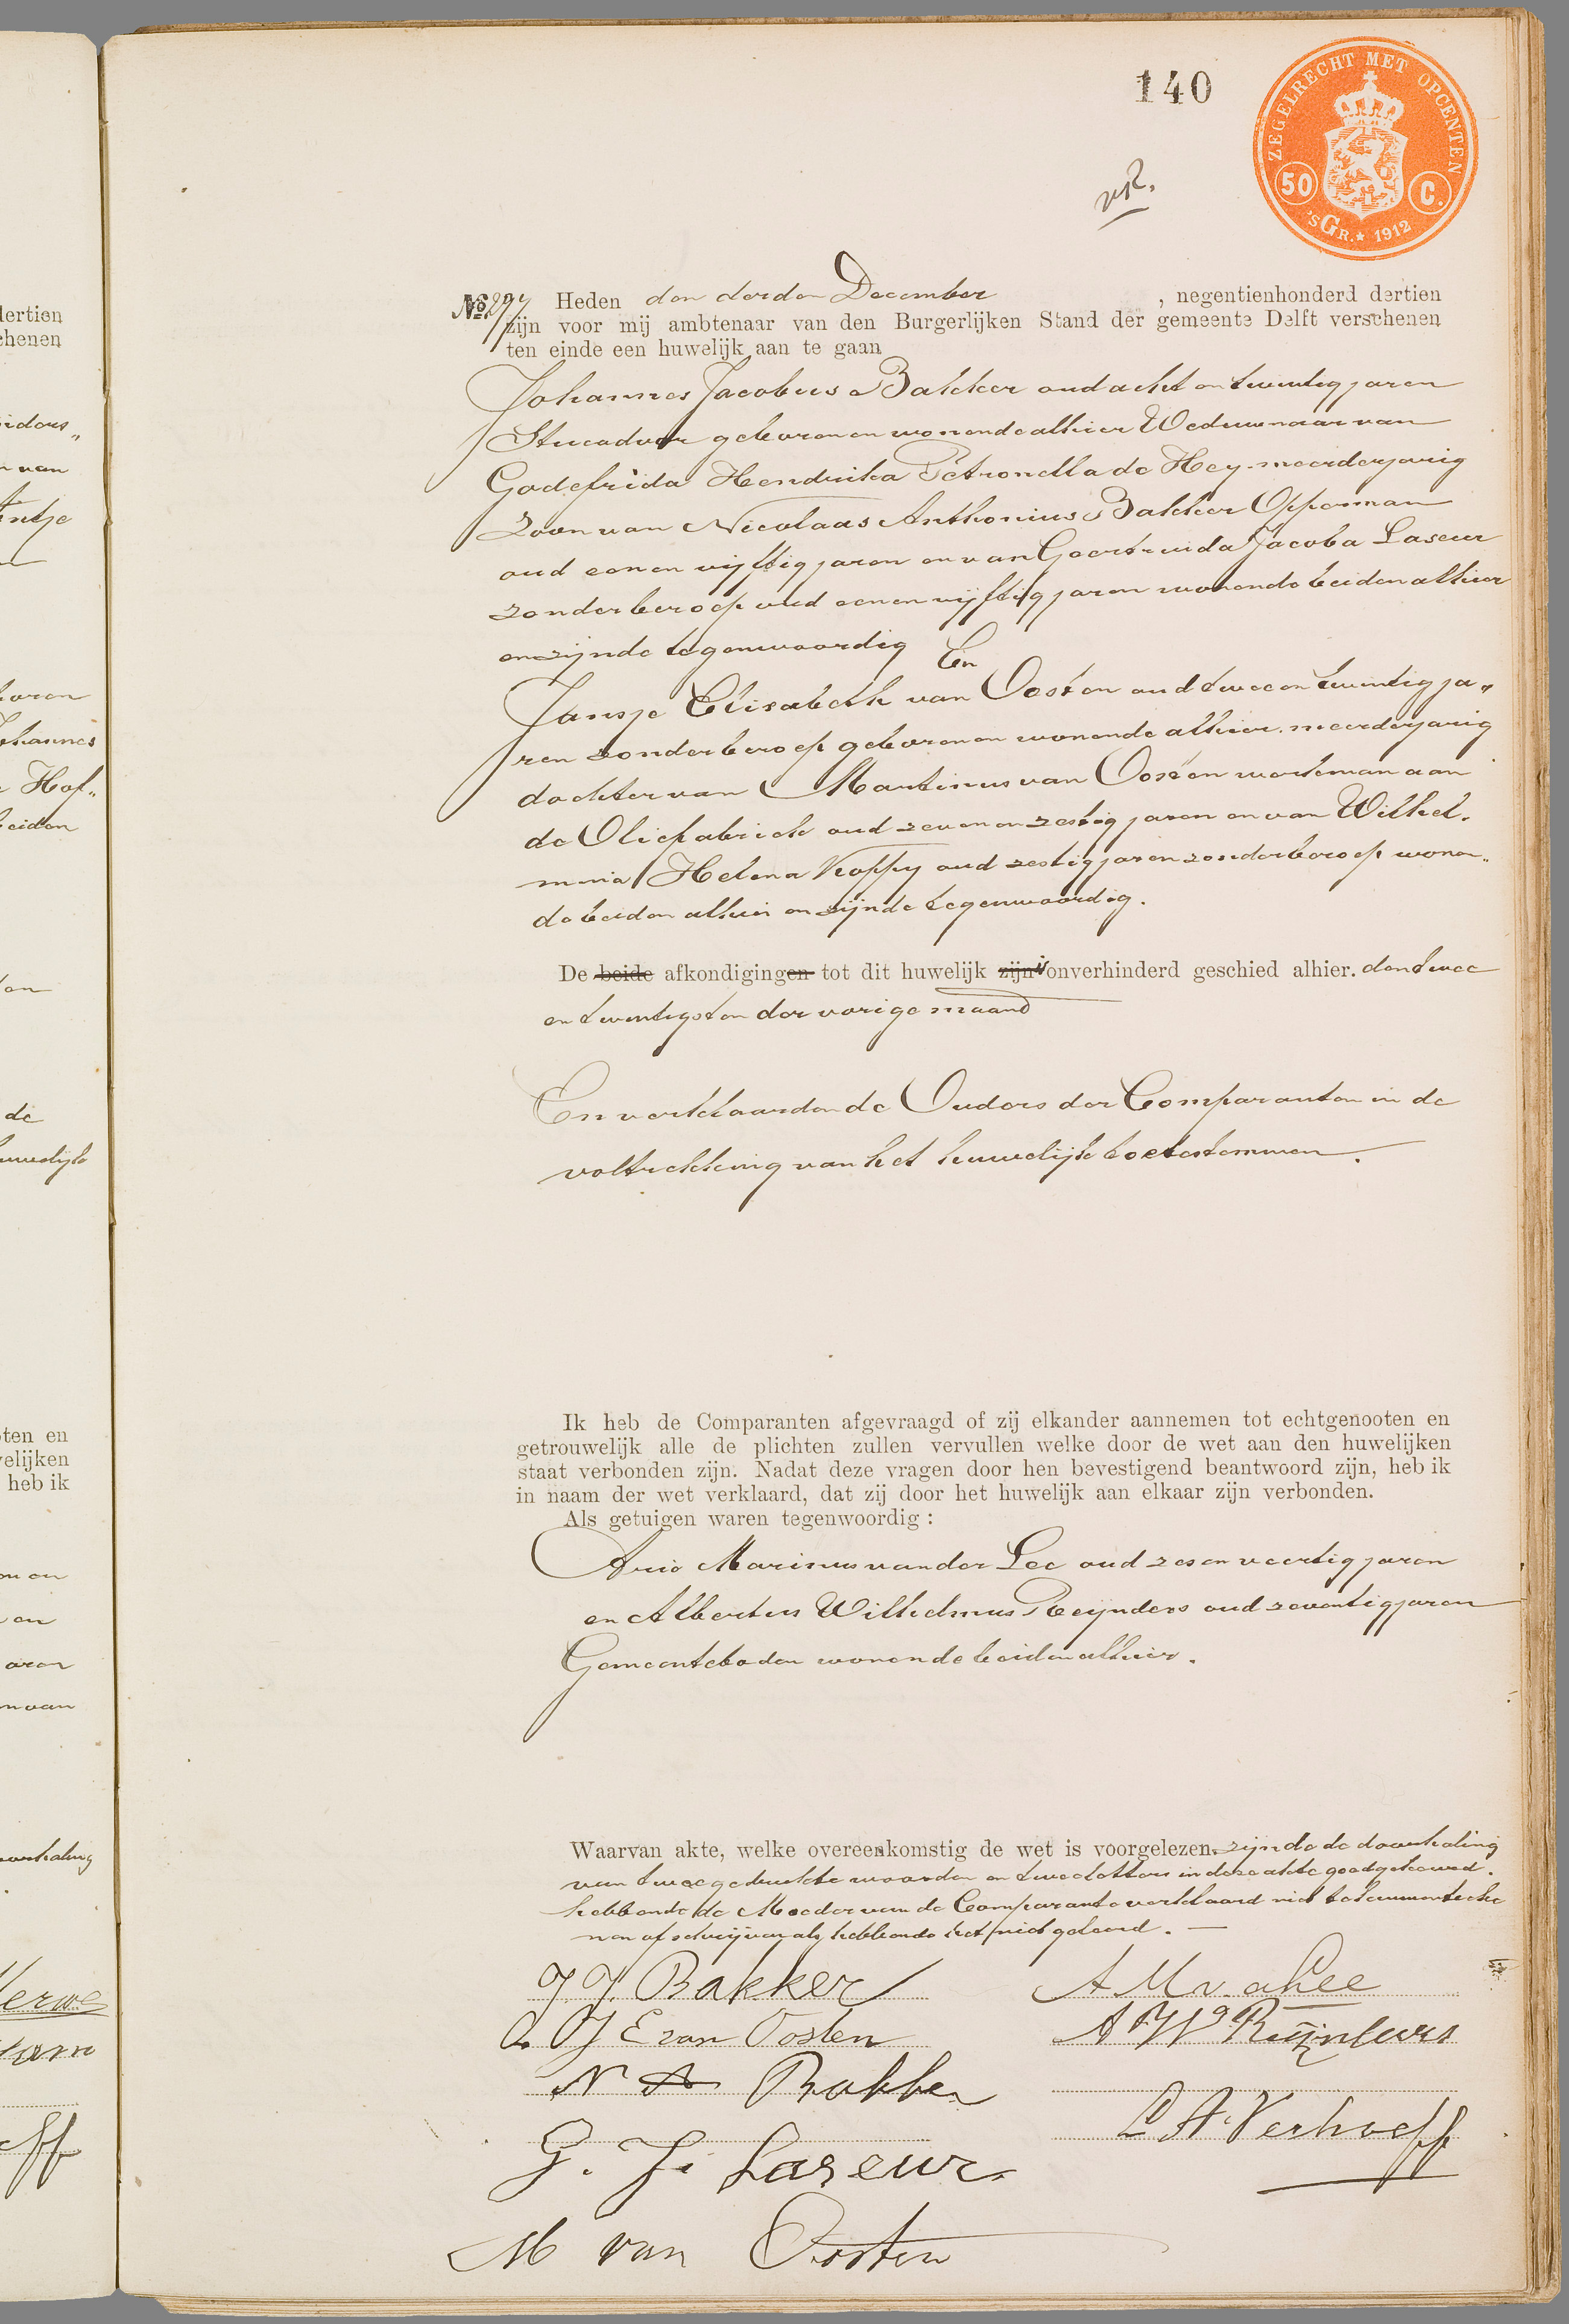 140
ZEGELRECHT MET OPCENTEN
50 C.
'SGR.★ 1912
No. 297 Heden den derden December , negentienhonderd dertien
zijn voor mij ambtenaar van den Burgerlijken Stand der gemeente Delft verschenen
ten einde een huwelijk aan te gaan
Johannes Jacobus Bakker oud acht en twintig jaren
Stucadoor geboren en wonende alhier Weduwnaar van
Godefrida Hendrika Petronella de Hey meerderjarig
Zoon van Nicolaas Anthonius Bakker Opperman
oud een en vijftig jaren en van Geertruida Jacoba Laseur
zonder beroep oud een en vijftig jaren wonende beiden alhier
en zijnde tegenwoordig En
Jansje Elisabeth van Oosten oud twee en twintig ja„
ren zonder beroep geboren en wonende alhier. meerderjarig
dochter van Martinus van Oosten werkman aan
de Oliefabriek oud zeven en zestig jaren en van Wilhel„
mina Helena Koppy oud zestig jaren zonder beroep wonen„
de beiden alhier en zijnde tegenwoordig.
De beide afkondigingen tot dit huwelijk zijn is onverhinderd geschied alhier. den twee
en twintigsten der vorige maand
En verklaarden de Ouders der Comparanten in de
voltrekking van het huwelijk toetestemmen.
Ik heb de Comparanten afgevraagd of zij elkander aannemen tot echtgenooten en
getrouwelijk alle de plichten zullen vervullen welke door de wet aan den huwelijken
staat verbonden zijn. Nadat deze vragen door hen bevestigend beantwoord zijn, heb ik
in naam der wet verklaard, dat zij door het huwelijk aan elkaar zijn verbonden.
Als getuigen waren tegenwoordig :
Arie Marinus van der Lee oud zes en veertig jaren
en Albertus Wilhelmus Reijnders oud zeventig jaren
Gemeenteboden wonende beiden alhier.
Waarvan akte, welke overeenkomstig de wet is voorgelezen. zijnde de doorhaling
van twee gedrukte woorden en twee letters in deze akte goedgekeurd.
hebbende de Moeder van de Comparante verklaard niet te kunnen teeke
nen of schrijven als hebbende het niet geleerd. —
J J. Bakker A M v. d Lee
J E van Oosten A Ws Reijnders
N A Bakker
L A. Verhoeff
G. J. Laseur
M van Oosten